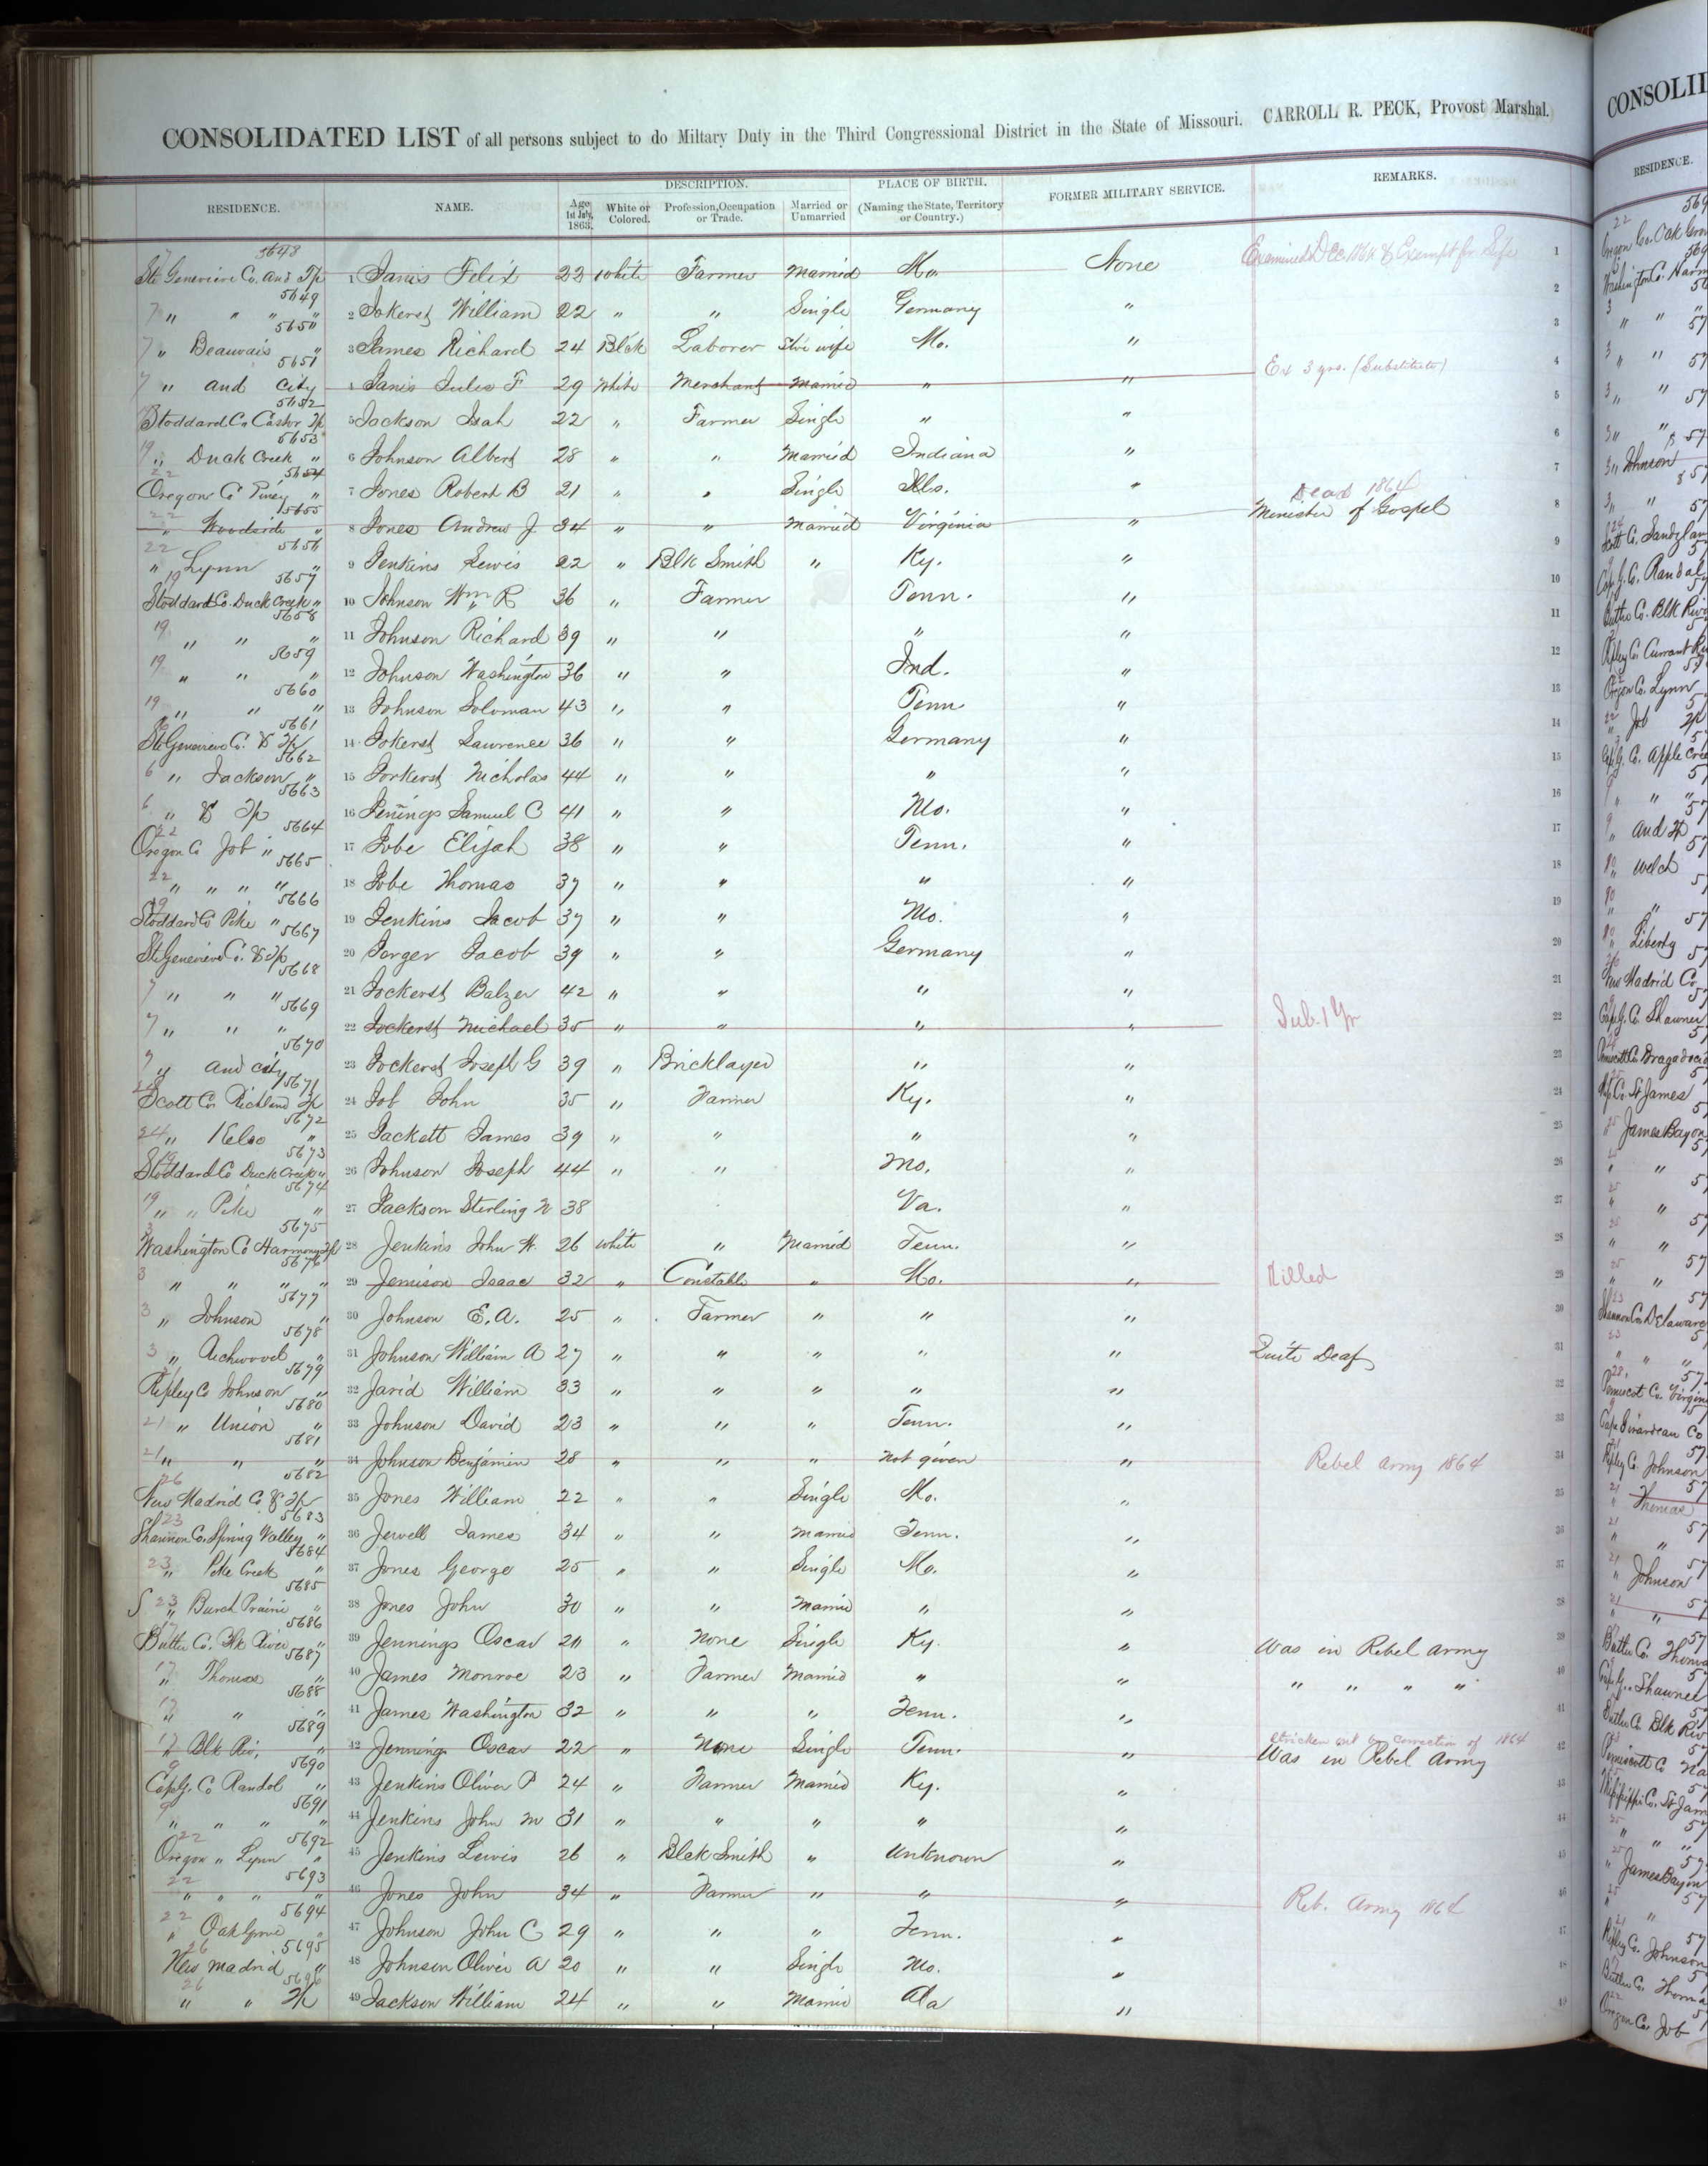 CONSOLIDATED LIST of all persons subject to do Miltary Duty in the Third Congressional District in the State of Missouri. CARROLL R. PECK, Provost Marshal.
RESIDENCE. NAME. DESCRIPTION. Age 1st July, 1863. White or Colored. Profession, Occupation or Trade. Married or Unmarried PLACE OF BIRTH. (Naming the State, Territory or Country.) FORMER MILITARY SERVICE. REMARKS.
7 5648 Ste Genevieve Co. and Tp 1 Janis Felix 22 White Farmer Married Mo. None Examined Dec 1864 & Exempt for Life 1
5649 7 " " " " 2 Jokerst William 22 " " Single Germany " 2
5650 7 " Beauvais " 3 James Richard 24 Blck Laborer Mo. " 3
5651 7 " and City 4 Janis Jules F 29 White Merchant Married " " Ex 3 yrs. (Substitute) 4
5652 Stoddard Co Castor Tp 5 Jackson Isah 22 " Farmer Single " " 5
5653 19 " Duck Creek " 6 Johnson Albert 28 " " Married Indiana " 6
5654 22 Oregon Co Piney " 7 Jones Robert B 21 " " Single Ills. " 7
5655 22 " Woodside " 8 Jones Andrew J 34 " " Married Virginia " Dead 1864 Minister of Gospel 8
5656 22 " Lynn " 9 Jenkins Lewis 22 " Blk Smith " Ky. " 9
5657 19 Stoddard Co. Duck Creek " 10 Johnson Wm R 36 " Farmer Tenn. " 10
5658 19 " " " 11 Johnson Richard 39 " " " " 11
5659 19 " " " 12 Johnson Washington 36 " " Ind. " 12
5660 19 " " " 13 Johnson Soloman 43 " " Tenn " 13
5661 6 Ste Genevieve Co. & Tp 14 Jokerst Lawrence 36 " " Germany " 14
5662 6 " Jackson " 15 Jorkerst Nicholas 44 " " " " 15
5663 6 " & Tp 16 Jennings Samuel C 41 " " Mo. " 16
5664 22 Oregon Co Job " 17 Jobe Elijah 38 " " Tenn. " 17
5665 22 " " " " 18 Jobe Thomas 37 " " " " 18
5666 19 Stoddard Co Pike " 19 Jenkins Jacob 37 " " Mo. " 19
5667 Ste Genevieve Co. & Tp 20 Jorger Jacob 39 " " Germany " 20
5668 7 " " " 21 Jockerst Balzer 42 " " " " 21
5669 7 " " " 22 Jockerst Michael 35 " " " " Sub. 1 Yr 22
5670 7 " and city 23 Jockerst Joseph G 39 " Bricklayer " " 23
5671 24 Scott Co. Richland Tp 24 Job John 35 " Farmer Ky. " 24
5672 24 " Kelso " 25 Jackett James 39 " " " " 25
5673 19 Stoddard Co Duck Creek " 26 Johnson Joseph 44 " " Mo. " 26
5674 19 " " Pike " 27 Jackson Sterling N 38 Va. " 27
5675 3 Washington Co Harmony Tp 28 Jenkins John W. 26 white " Married Tenn. " 28
5676 3 " " " " 29 Jemison Isaac 32 " Constable " Mo. " Killed 29
5677 3 " Johnson " 30 Johnson E. A. 25 " Farmer " " " 30
5678 3 " Richwood " 31 Johnson William A 27 " " " " " Quite Deaf 31
5679 21 Ripley Co Johnson " 32 Jarid William 33 " " " " " 32
5680 21 " Union " 33 Johnson David 23 " " " Tenn. " 33
5681 21 " " " 34 Johnson Benjamin 28 " " " not given " Rebel Army 1864 34
5682 26 New Madrid Co & Tp 35 Jones William 22 " " Single Mo. " 35
5683 23 Shannon Co. Spring Valley " 36 Jewell James 34 " " Married Tenn. " 36
5684 23 " Pike Creek " 37 Jones George 25 " " Single Mo. " 37
5685 S 23 " Burch Prairie " 38 Jones John 30 " " Married " " 38
5686 17 Butler Co. Blk River " 39 Jennings Oscar 20 " None Single Ky. " Was in Rebel Army 39
5687 17 " Thomas " 40 James Monroe 23 " Farmer Married " " " " " " 40
5688 17 " " " 41 James Washington 32 " " " Tenn. " 41
5689 17 " Blk Riv. " 42 Jennings Oscar 22 " None Single Tenn. " Stricken out on correction of 1864 Was in Rebel Army 42
5690 9 Cape G. Co Randol " 43 Jenkins Oliver P 24 " Farmer Married Ky. " 43
5691 9 " " " " 44 Jenkins John M 31 " " " " " 44
5692 22 Oregon " Lynn " 45 Jenkins Lewis 26 " Blck Smith " Unknown " 45
5693 22 " " " " 46 Jones John 34 " Farmer " " " Reb. Army 1864 46
5694 22 " Oak Grove " 47 Johnson John C 29 " " " Tenn. " 47
5695 26 New Madrid " 48 Johnson Oliver A 20 " " Single Mo. " 48
5696 26 " " Tp 49 Jackson William 24 " " Married Ala " 49
CONSOLI
RESIDENCE.
Oregon Co. Oak Grov
Washington Co. Harm
" Johnson
Scott Co. Sandy
Cape G. Co. Randal
Butler Co. Blk Riv
Ripley Co. Currant Ri
Oregon Co. Lynn
" Job Tp
Cape G. Co. Apple Cre
" and Tp
" Welch
" Liberty
New Madrid Co
Cape G. Co. Shawnee
St James
" James Bayou
Shannon Co. Delaware
Pemiscot Co. Virgin
Cape Girardeau Co
Ripley Co. Johnson
" Thomas
" Johnson
Butler Co. Thom
Cape G. Shawnee
Butler Co Blk Riv
Mississippi Co. St Jam
" James Bayou
Ripley Co. Johnson
Butler Co. Thoma
Oregon Co. Job